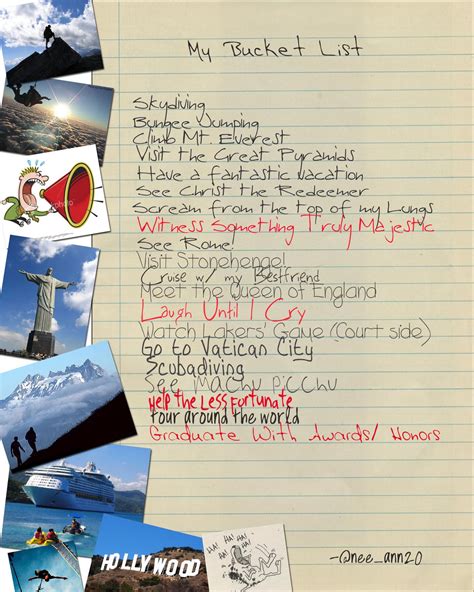 My Bucket List
Skydiving
Bungee Jumping
Climb Mt. Everest
Visit the Great Pyramids
Have a fantastic vacation
See Christ the Redeemer
Scream from the top of my Lungs
Witness Something Truly Majestic
See Rome!
Visit Stonehenge!
Cruise w/ my Bestfriend
Meet the Queen of England
Laugh Until I Cry
Watch Lakers' Game (Court side)
Go to Vatican City
Scubadiving
See Machu Picchu
Help the Less Fortunate
tour around the world
Graduate With Awards/ Honors
HOLLYWOOD
HA! HA! HA! HA!
-@nee_ann20